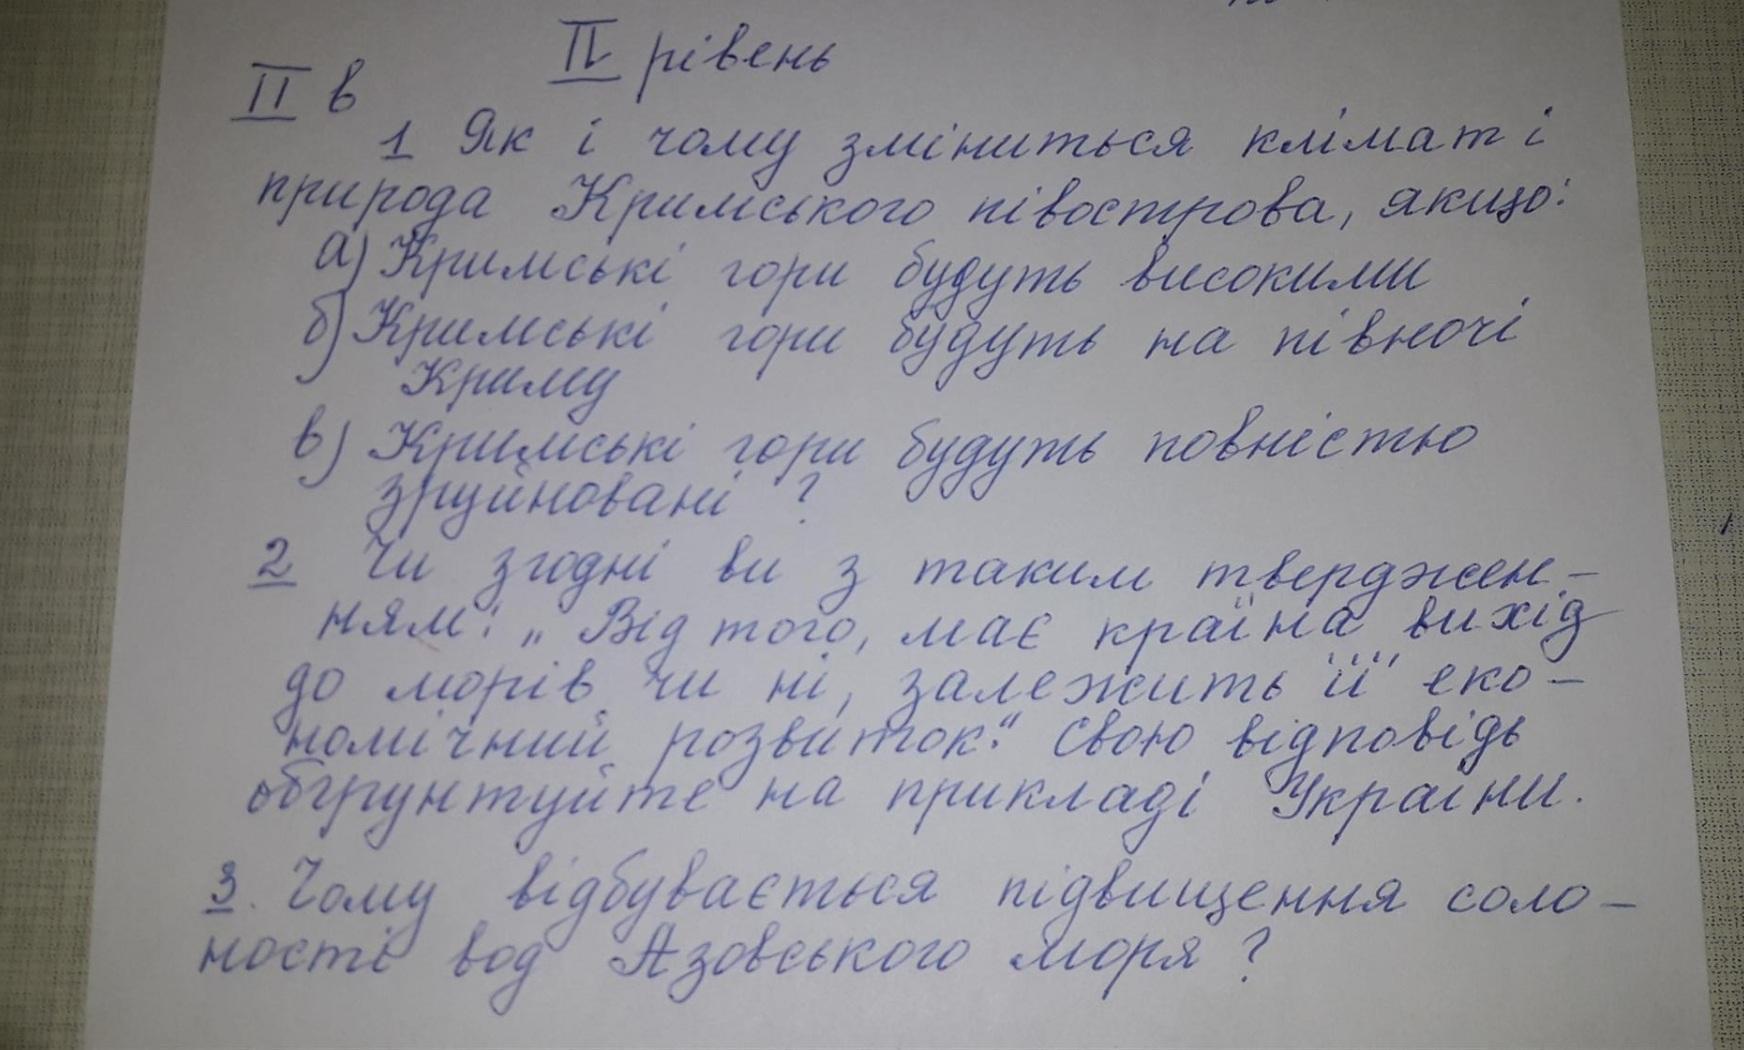 II рівень
II в
1 Як і чому зміниться клімат і
природа Кримського півострова, якщо:
а) Кримські гори будуть високими
б) Кримські гори будуть на півночі
Криму
в) Кримські гори будуть повністю
зруйновані ?
2 Чи згодні ви з таким тверджен-
ням: „Від того, має країна вихід
до морів чи ні, залежить її еко-
номічний розвиток." Свою відповідь
обґрунтуйте на прикладі України.
3. Чому відбувається підвищення соло-
ності вод Азовського моря ?